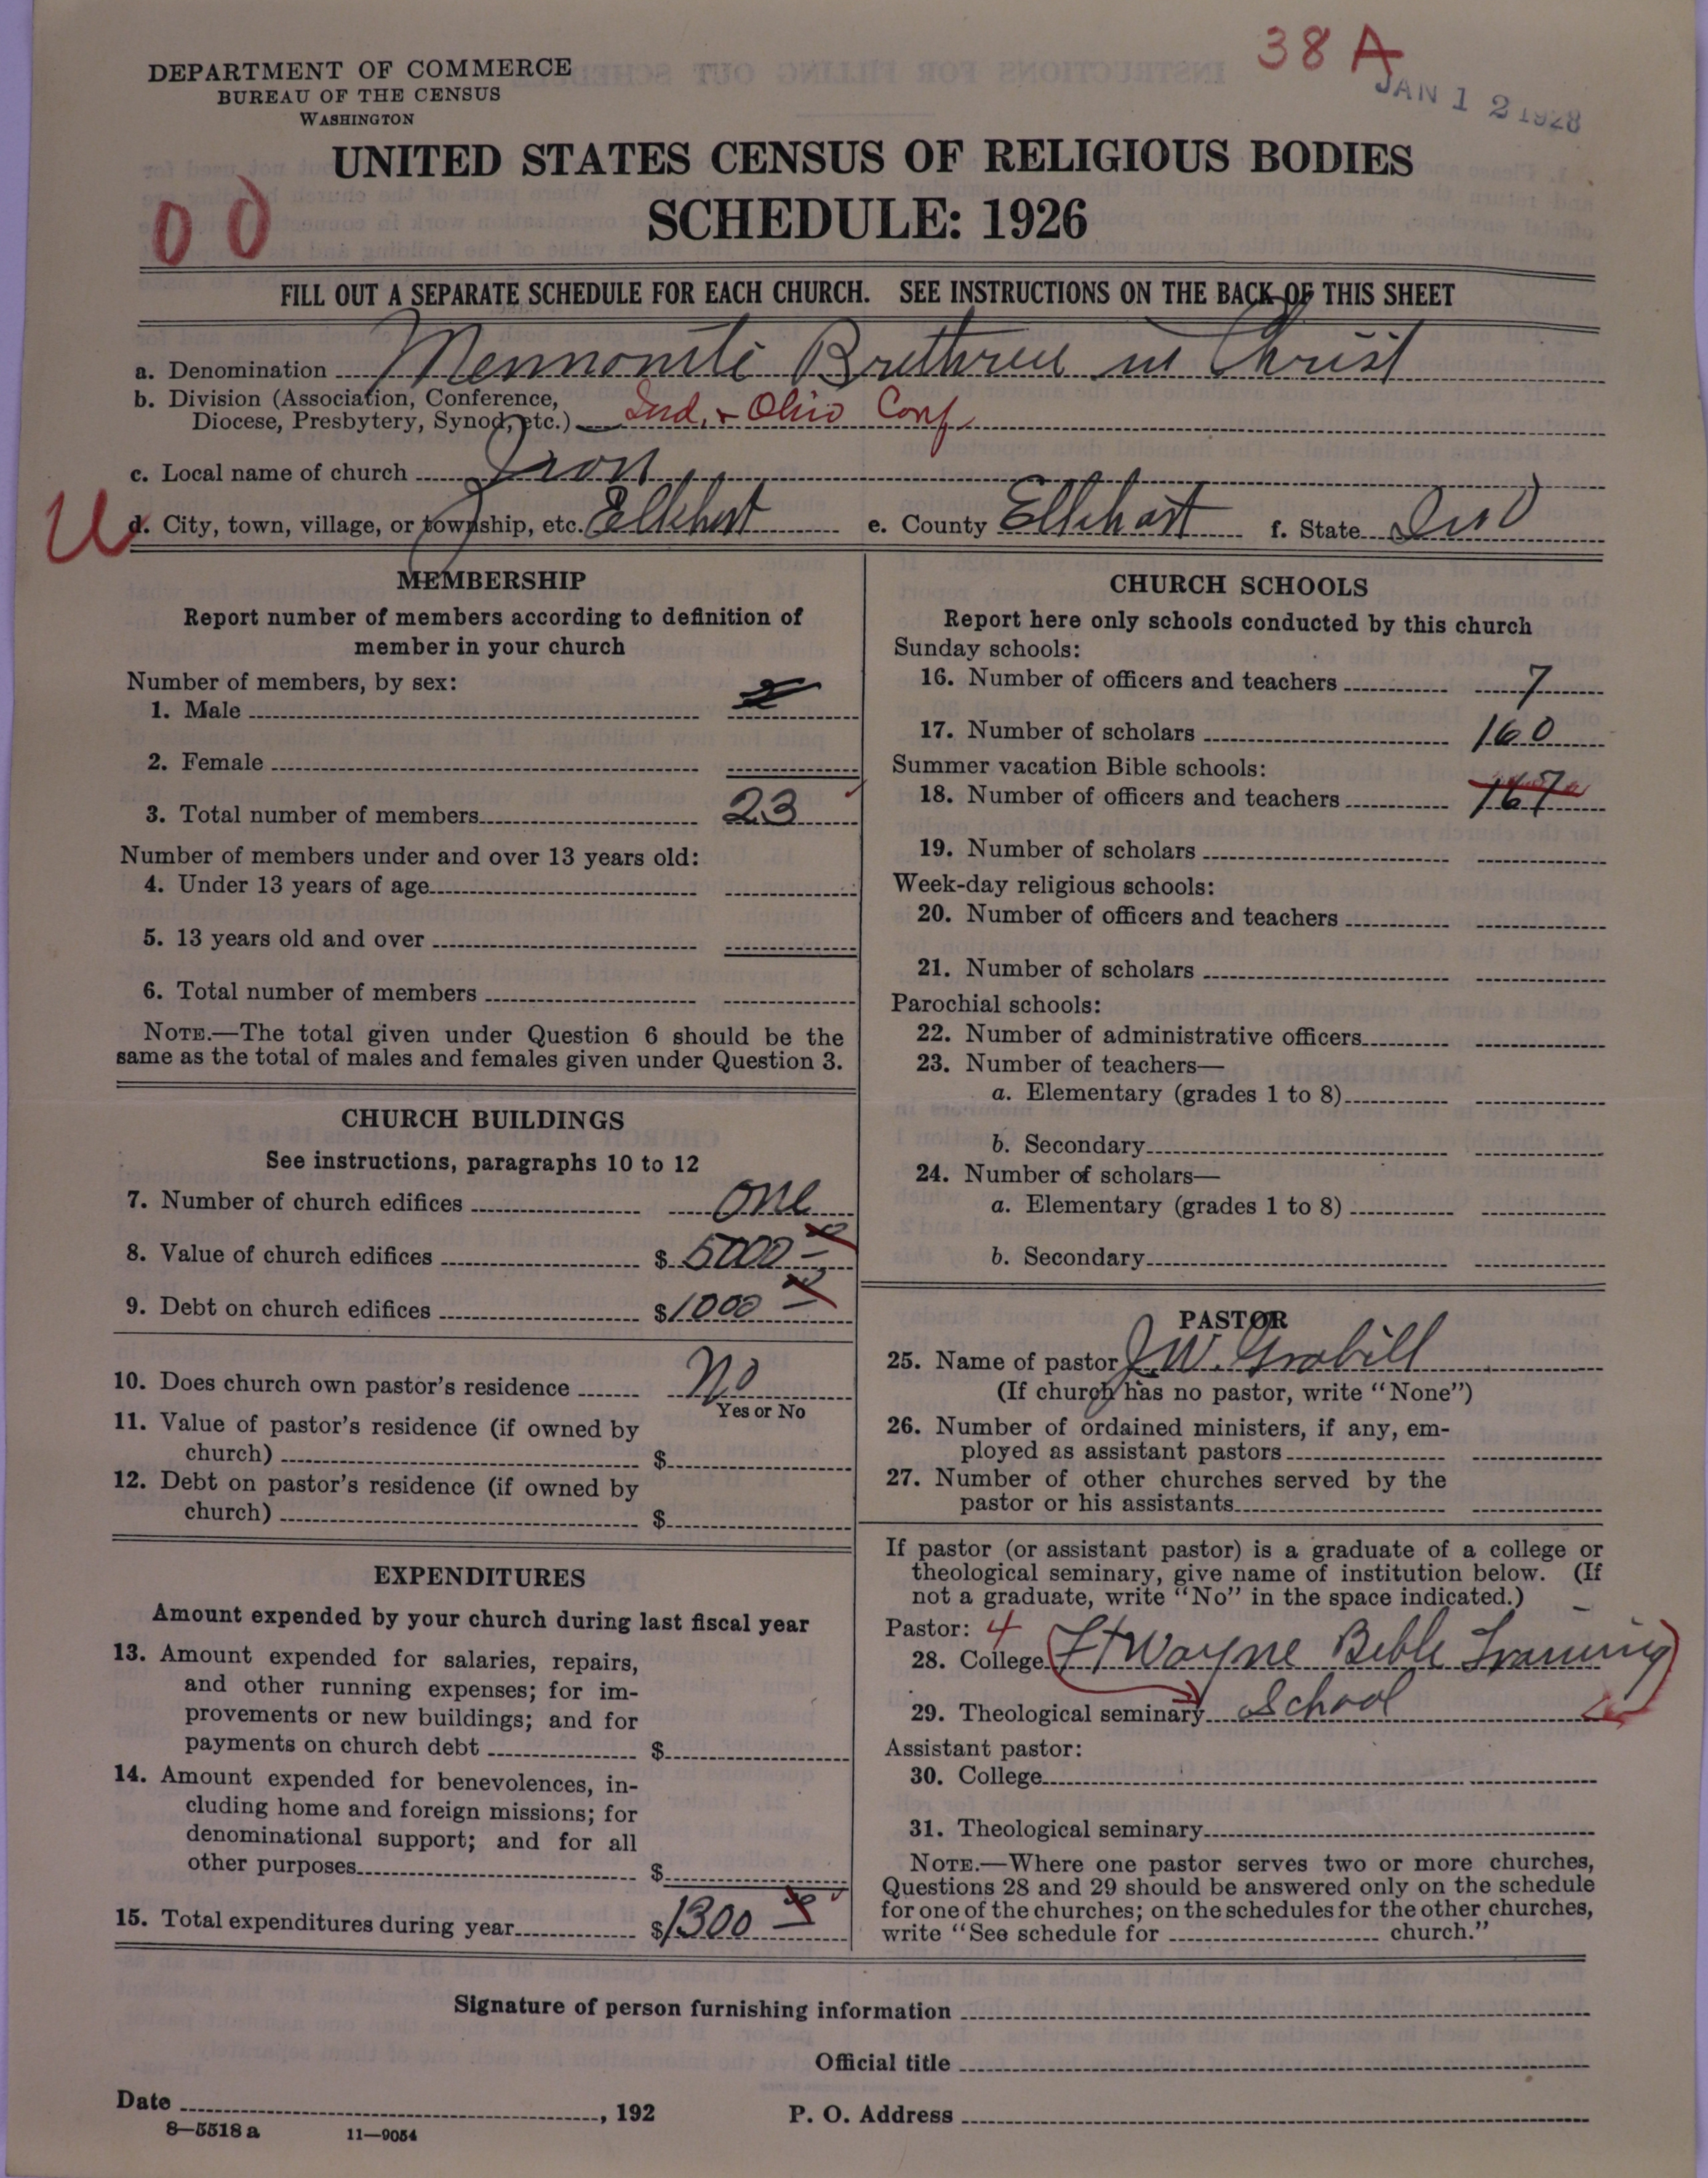 38 A
JAN 12 1928
DEPARTMENT OF COMMERCE
BUREAU OF THE CENSUS
WASHINGTON
UNITED STATES CENSUS OF RELIGIOUS BODIES
SCHEDULE: 1926
00
FILL OUT A SEPARATE SCHEDULE FOR EACH CHURCH. SEE INSTRUCTIONS ON THE BACK OF THIS SHEET
a. Denomination Mennonite Brethren in Christ
b. Division (Association, Conference,
Diocese, Presbytery, Synod, etc.) Ind. + Ohio Conf
c. Local name of church Zion
U d. City, town, village, or township, etc. Elkhart e. County Elkhart f. State Ind
MEMBERSHIP
Report number of members according to definition of
member in your church
Number of members, by sex:
1. Male
2. Female
3. Total number of members 23
Number of members under and over 13 years old:
4. Under 13 years of age
5. 13 years old and over
6. Total number of members
NOTE.—The total given under Question 6 should be the
same as the total of males and females given under Question 3.
CHURCH BUILDINGS
See instructions, paragraphs 10 to 12
7. Number of church edifices one
8. Value of church edifices $ 5000
9. Debt on church edifices $ 1000
10. Does church own pastor's residence No
Yes or No
11. Value of pastor's residence (if owned by
church) $
12. Debt on pastor's residence (if owned by
church) $
EXPENDITURES
Amount expended by your church during last fiscal year
13. Amount expended for salaries, repairs,
and other running expenses; for im-
provements or new buildings; and for
payments on church debt $
14. Amount expended for benevolences, in-
cluding home and foreign missions; for
denominational support; and for all
other purposes $
15. Total expenditures during year $ 1300
CHURCH SCHOOLS
Report here only schools conducted by this church
Sunday schools:
16. Number of officers and teachers 7
17. Number of scholars 160
Summer vacation Bible schools:
18. Number of officers and teachers 167
19. Number of scholars
Week-day religious schools:
20. Number of officers and teachers
21. Number of scholars
Parochial schools:
22. Number of administrative officers
23. Number of teachers—
a. Elementary (grades 1 to 8)
b. Secondary
24. Number of scholars—
a. Elementary (grades 1 to 8)
b. Secondary
PASTOR
25. Name of pastor J. W. Grabill
(If church has no pastor, write "None")
26. Number of ordained ministers, if any, em-
ployed as assistant pastors
27. Number of other churches served by the
pastor or his assistants
If pastor (or assistant pastor) is a graduate of a college or
theological seminary, give name of institution below. (If
not a graduate, write "No" in the space indicated.)
Pastor: 4
28. College Ft Wayne Bible Training
29. Theological seminary School
Assistant pastor:
30. College
31. Theological seminary
NOTE.—Where one pastor serves two or more churches,
Questions 28 and 29 should be answered only on the schedule
for one of the churches; on the schedules for the other churches,
write "See schedule for church."
Signature of person furnishing information
Official title
Date , 192
P. O. Address
8—5518 a 11—9054